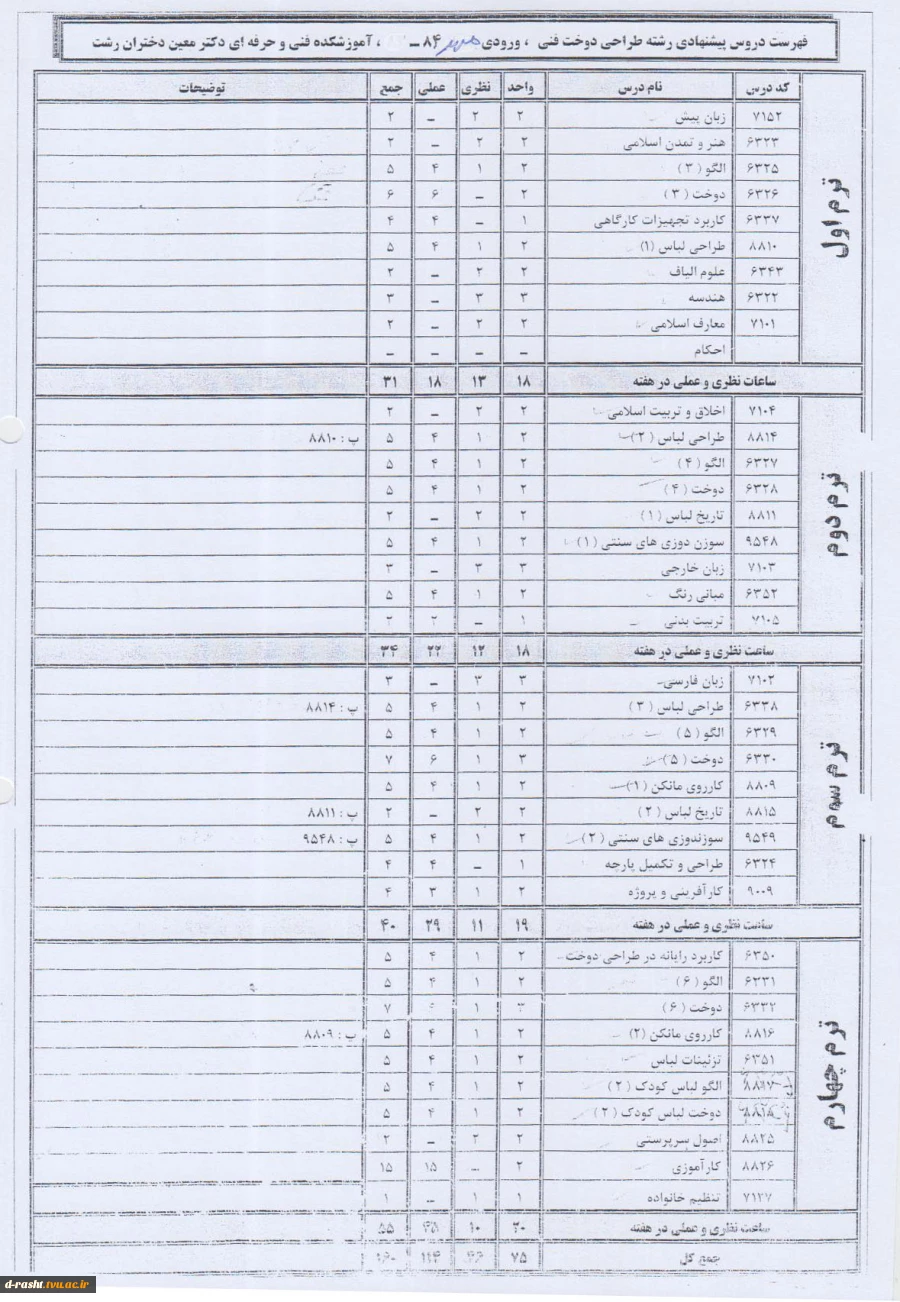 فهرست دروس پیشنهادی رشته طراحی دوخت فنی ، ورودی مهر ۸۴ ــ ، آموزشکده فنی و حرفه ای دکتر معین دختران رشت
کد درس نام درس واحد نظری عملی جمع توضیحات
ترم اول
۷۱۵۲ زبان پیش ۲ ۲ ــ ۲
۶۳۲۳ هنر و تمدن اسلامی ۲ ۲ ــ ۲
۶۳۲۵ الگو ( ۳ ) ۲ ۱ ۴ ۵
۶۳۲۶ دوخت ( ۳ ) ۲ ــ ۶ ۶
۶۳۳۷ کاربرد تجهیزات کارگاهی ۱ ــ ۴ ۴
۸۸۱۰ طراحی لباس (۱) ۲ ۱ ۴ ۵
۶۳۴۳ علوم الیاف ۲ ۲ ــ ۲
۶۳۲۲ هندسه ۳ ۳ ــ ۳
۷۱۰۱ معارف اسلامی ۲ ۲ ــ ۲
احکام ــ ــ ــ ــ
ساعات نظری و عملی در هفته ۱۸ ۱۳ ۱۸ ۳۱
ترم دوم
۷۱۰۴ اخلاق و تربیت اسلامی ۲ ۲ ــ ۲
۸۸۱۴ طراحی لباس ( ۲ ) ۲ ۱ ۴ ۵ پ : ۸۸۱۰
۶۳۲۷ الگو ( ۴ ) ۲ ۱ ۴ ۵
۶۳۲۸ دوخت ( ۴ ) ۲ ۱ ۴ ۵
۸۸۱۱ تاریخ لباس ( ۱ ) ۲ ۲ ــ ۲
۹۵۴۸ سوزن دوزی های سنتی ( ۱ ) ۲ ۱ ۴ ۵
۷۱۰۳ زبان خارجی ۳ ۳ ــ ۳
۶۳۵۲ مبانی رنگ ۲ ۱ ۴ ۵
۷۱۰۵ تربیت بدنی ۱ ــ ۲ ۲
ساعت نظری و عملی در هفته ۱۸ ۱۲ ۲۲ ۳۴
ترم سوم
۷۱۰۲ زبان فارسی ۳ ۳ ــ ۳
۶۳۳۸ طراحی لباس ( ۳ ) ۲ ۱ ۴ ۵ پ : ۸۸۱۴
۶۳۲۹ الگو ( ۵ ) ۲ ۱ ۴ ۵
۶۳۳۰ دوخت ( ۵ ) ۳ ۱ ۶ ۷
۸۸۰۹ کارروی مانکن ( ۱ ) ۲ ۱ ۴ ۵
۸۸۱۵ تاریخ لباس ( ۲ ) ۲ ۲ ــ ۲ پ : ۸۸۱۱
۹۵۴۹ سوزندوزی های سنتی ( ۲ ) ۲ ۱ ۴ ۵ پ : ۹۵۴۸
۶۳۲۴ طراحی و تکمیل پارچه ۱ ــ ۴ ۴
۹۰۰۹ کارآفرینی و پروژه ۲ ۱ ۳ ۴
ساعت نظری و عملی در هفته ۱۹ ۱۱ ۲۹ ۴۰
ترم چهارم
۶۳۵۰ کاربرد رایانه در طراحی دوخت ۲ ۱ ۴ ۵
الگو ( ۶ ) ۲ ۱ ۴ ۵
۶۳۳۲ دوخت ( ۶ ) ۱ ۷
۸۸۱۶ کارروی مانکن (۲) ۲ ۱ ۴ ۵ پ : ۸۸۰۹
۶۳۵۱ تزئینات لباس ۲ ۱ ۴ ۵
۸۸۱۷ الگو لباس کودک ( ۲ ) ۲ ۱ ۴ ۵
۸۸۱۸ دوخت لباس کودک ( ۲ ) ۲ ۱ ۴ ۵
۸۸۲۵ اصول سرپرستی ۲ ۲ ــ ۲
۸۸۲۶ کارآموزی ۲ ــ ۱۵ ۱۵
۷۱۲۷ تنظیم خانواده ۱ ۱ ــ ۱
ساعت نظری و عملی در هفته ۲۰ ۱۰ ۴۵ ۵۵
جمع کل ۷۵ ۴۶ ۱۱۴ ۱۶۰
d-rasht.tvu.ac.ir